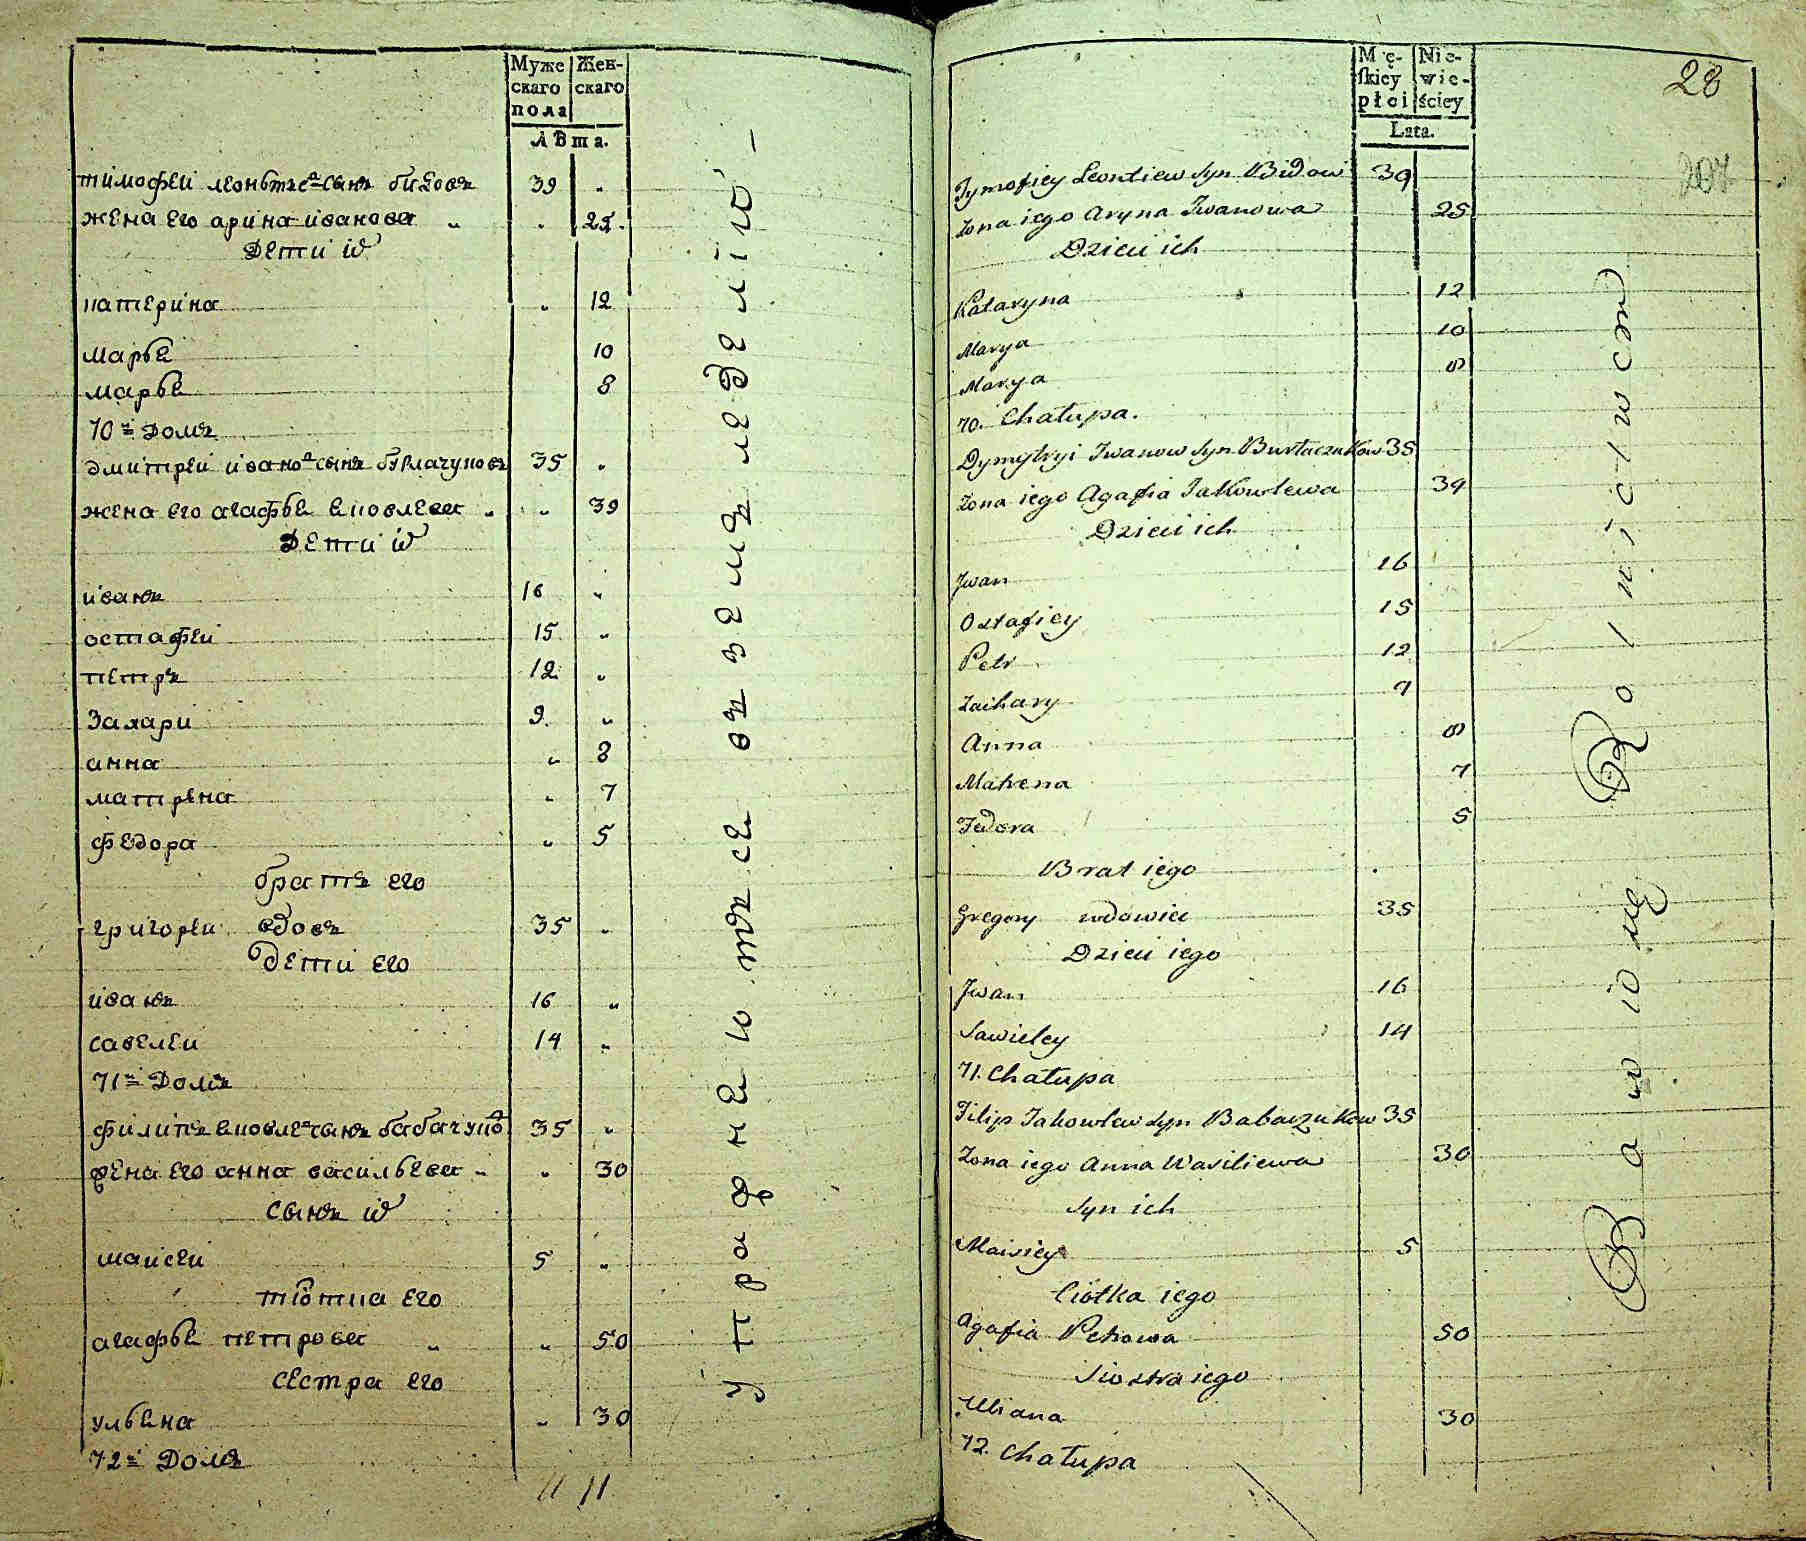 Муже Жен-
скаго скаго
пола
лѣта.
тимофеи леонтьесъ сынъ бидовъ 39 "
жена его арина иванова " " 25.
дети их
катерина " 12
марья 10
марья 8
70й домъ
дмитреи иванов сынъ бурлачуковъ 35 "
жена его агафья яковлева " " 39
дети их
иванъ 16 "
остафеи 15 "
петръ 12 "
Захари 9 "
анна " 8
матрена " 7
федора " 5
братъ его
григореи вдовъ 35 "
дети его
иванъ 16 "
савелеи 14 "
71й домъ
филипъ яковлев сынъ бабачуков 35 "
жена его анна васильева " " 30
сынъ их
маисеи 5 "
тіотка его
агафья петрова " " 50
сестра его
ульяна " 30
72й домъ
11 11
упражнеютъсе въ земъледелію –
Mę- Nie-
skiey wie-
płci ściey
Lata.
28
207
Tymofiey Leontiew syn Bidow 39
Zona iego Aryna Iwanowa 25
Dzieci ich
Kataryna 12
Marya 10
Marya 8
70. Chałupa.
Dymytryi Iwanow syn Burłaczukow 35
Zona iego Agafia Jakowlewa 39
Dzieci ich
Jwan 16
Ostafiey 15
Petr 12
Zachary 9
Anna 8
Matrena 7
Fedora 5
Brat iego
Gregory wdowiec 35
Dzieci iego
Jwan 16
Sawieley 14
71. Chałupa
Filip Jakowlew syn Babaczukow 35
Zona iego Anna Wasiliewa 30
Syn ich
Maisiey 5
Ciotka iego
Agafia Petrowa 50
Siostra iego
Uliana 30
72. Chałupa
Bawią się Rolnictwem